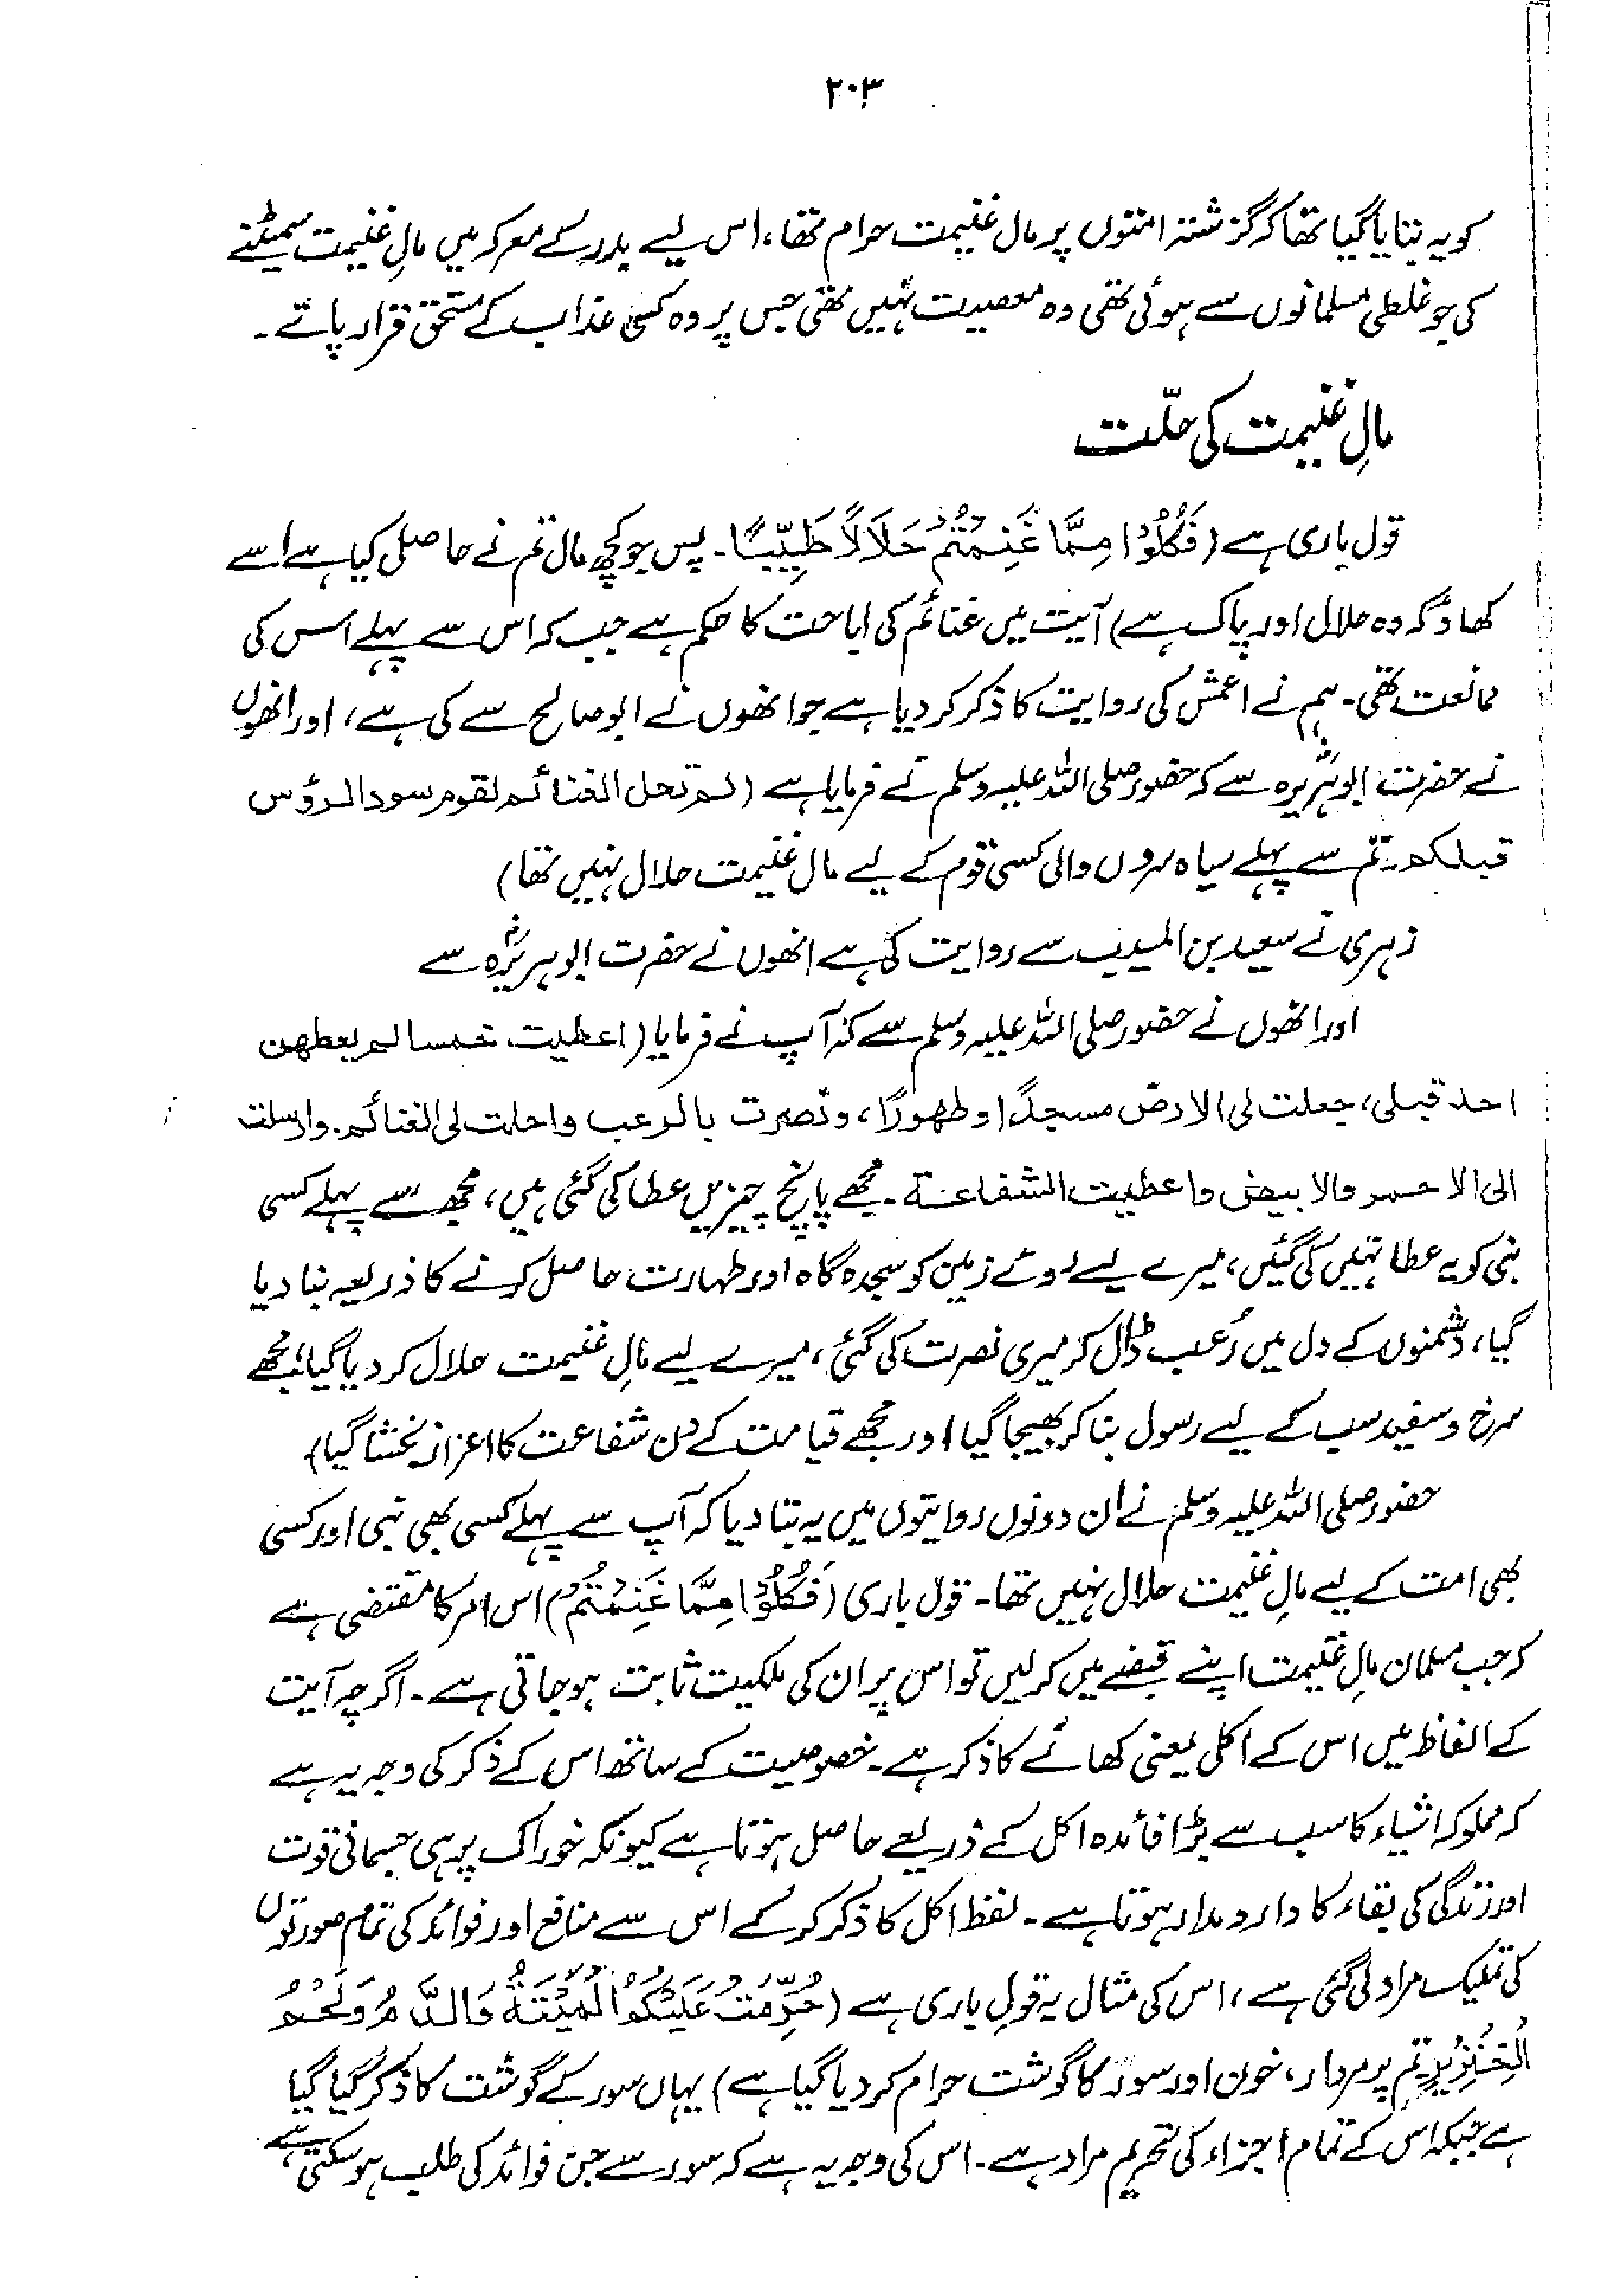 ۲۰۳
کو یہ بتایا گیا تھا کہ گزشتہ امتوں پر مال غنیمت حرام تھا، اس لیے بدر کے معرکہ میں مالِ غنیمت سمیٹنے
کی جو غلطی مسلمانوں سے ہوئی تھی وہ معصیت نہیں تھی جس پر وہ کسی عذاب کے مستحق قرار پاتے۔
مالِ غنیمت کی حلّت
قول باری ہے (فَكُلُوْا مِمَّا غَنِمْتُمْ حَلَالًا طَيِّبًا۔ پس جو کچھ مال تم نے حاصل کیا ہے اسے
کھاؤ کہ وہ حلال اور پاک ہے) آیت میں غنائم کی اباحت کا حکم ہے جب کہ اس سے پہلے اس کی
ممانعت تھی۔ ہم نے اعمش کی روایت کا ذکر کر دیا ہے جو انھوں نے ابوصالح سے کی ہے، اور انھوں
نے حضرت ابوہریرہؓ سے کہ حضور صلی اللہ علیہ وسلم نے فرمایا ہے (لم تحل الغنائم لقوم سود الرؤس
قبلکم۔ تم سے پہلے سیاہ سروں والی کسی قوم کے لیے مال غنیمت حلال نہیں تھا)
زہری نے سعید بن المسیب سے روایت کی ہے انھوں نے حضرت ابوہریرہؓ سے
اور انھوں نے حضور صلی اللہ علیہ وسلم سے کہ آپ نے فرمایا (اعطیت خمسا لم یعطهن
احد قبلی، جعلت لی الارض مسجدًا وطهورًا، ونصرت بالرعب واحلت لی الغنائم۔ وارسلت
الی الاحمر والابیض واعطیت الشفاعة۔ مجھے پانچ چیزیں عطا کی گئی ہیں، مجھ سے پہلے کسی
نبی کو یہ عطا نہیں کی گئیں، میرے لیے روئے زمین کو سجدہ گاہ اور طہارت حاصل کرنے کا ذریعہ بنا دیا
گیا، دشمنوں کے دل میں رُعب ڈال کر میری نصرت کی گئی، میرے لیے مالِ غنیمت حلال کر دیا گیا، مجھے
سرخ و سفید سب کے لیے رسول بنا کر بھیجا گیا اور مجھے قیامت کے دن شفاعت کا اعزاز بخشا گیا)
حضور صلی اللہ علیہ وسلم نے ان دونوں روایتوں میں یہ بتا دیا کہ آپ سے پہلے کسی بھی نبی اور کسی
بھی امت کے لیے مالِ غنیمت حلال نہیں تھا۔ قول باری (فَكُلُوْا مِمَّا غَنِمْتُمْ) اس امر کا مقتضی ہے
کہ جب مسلمان مالِ غنیمت اپنے قبضے میں کر لیں تو اس پر ان کی ملکیت ثابت ہو جاتی ہے۔ اگرچہ آیت
کے الفاظ میں اس کے اکل یعنی کھانے کا ذکر ہے۔ خصوصیت کے ساتھ اس کے ذکر کی وجہ یہ ہے
کہ مملوکہ اشیاء کا سب سے بڑا فائدہ اکل کے ذریعے حاصل ہوتا ہے کیونکہ خوراک پر ہی جسمانی قوت
اور زندگی کی بقاء کا دارومدار ہوتا ہے۔ لفظ اکل کا ذکر کر کے اس سے منافع اور فوائد کی تمام صورتوں
کی تملیک مراد لی گئی ہے، اس کی مثال یہ قولِ باری ہے (حُرِّمَتْ عَلَيْكُمُ الْمَيْتَةُ وَالدَّمُ وَلَحْمُ
الْخِنْزِيْرِ۔ تم پر مردار، خون اور سور کا گوشت حرام کر دیا گیا ہے) یہاں سور کے گوشت کا ذکر کیا گیا
ہے جبکہ اس کے تمام اجزاء کی تحریم مراد ہے۔ اس کی وجہ یہ ہے کہ سور سے جن فوائد کی طلب ہو سکتی ہے